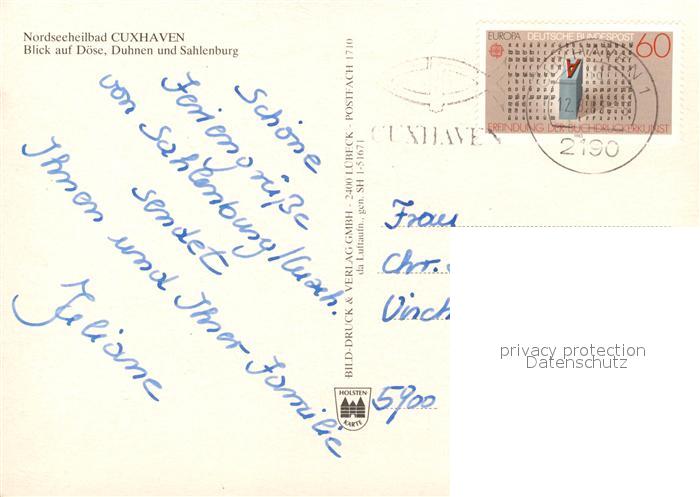 Nordseeheilbad CUXHAVEN
Blick auf Döse, Duhnen und Sahlenburg
Schöne
Feriengrüße
von Sahlenburg/Cuxh.
sendet
Ihnen und Ihrer Familie
Juliane
BILD-DRUCK & VERLAG GMBH - 2400 LÜBECK - POSTFACH 1710
da Luftaufn., gen. SH 1-51671
HOLSTEN
KARTE
EUROPA DEUTSCHE BUNDESPOST 60
A
ERFINDUNG DER BUCHDRUCKERKUNST
CUXHAVEN
CUXHAVEN 1
2190
Frau
Chr.
5900
privacy protection
Datenschutz